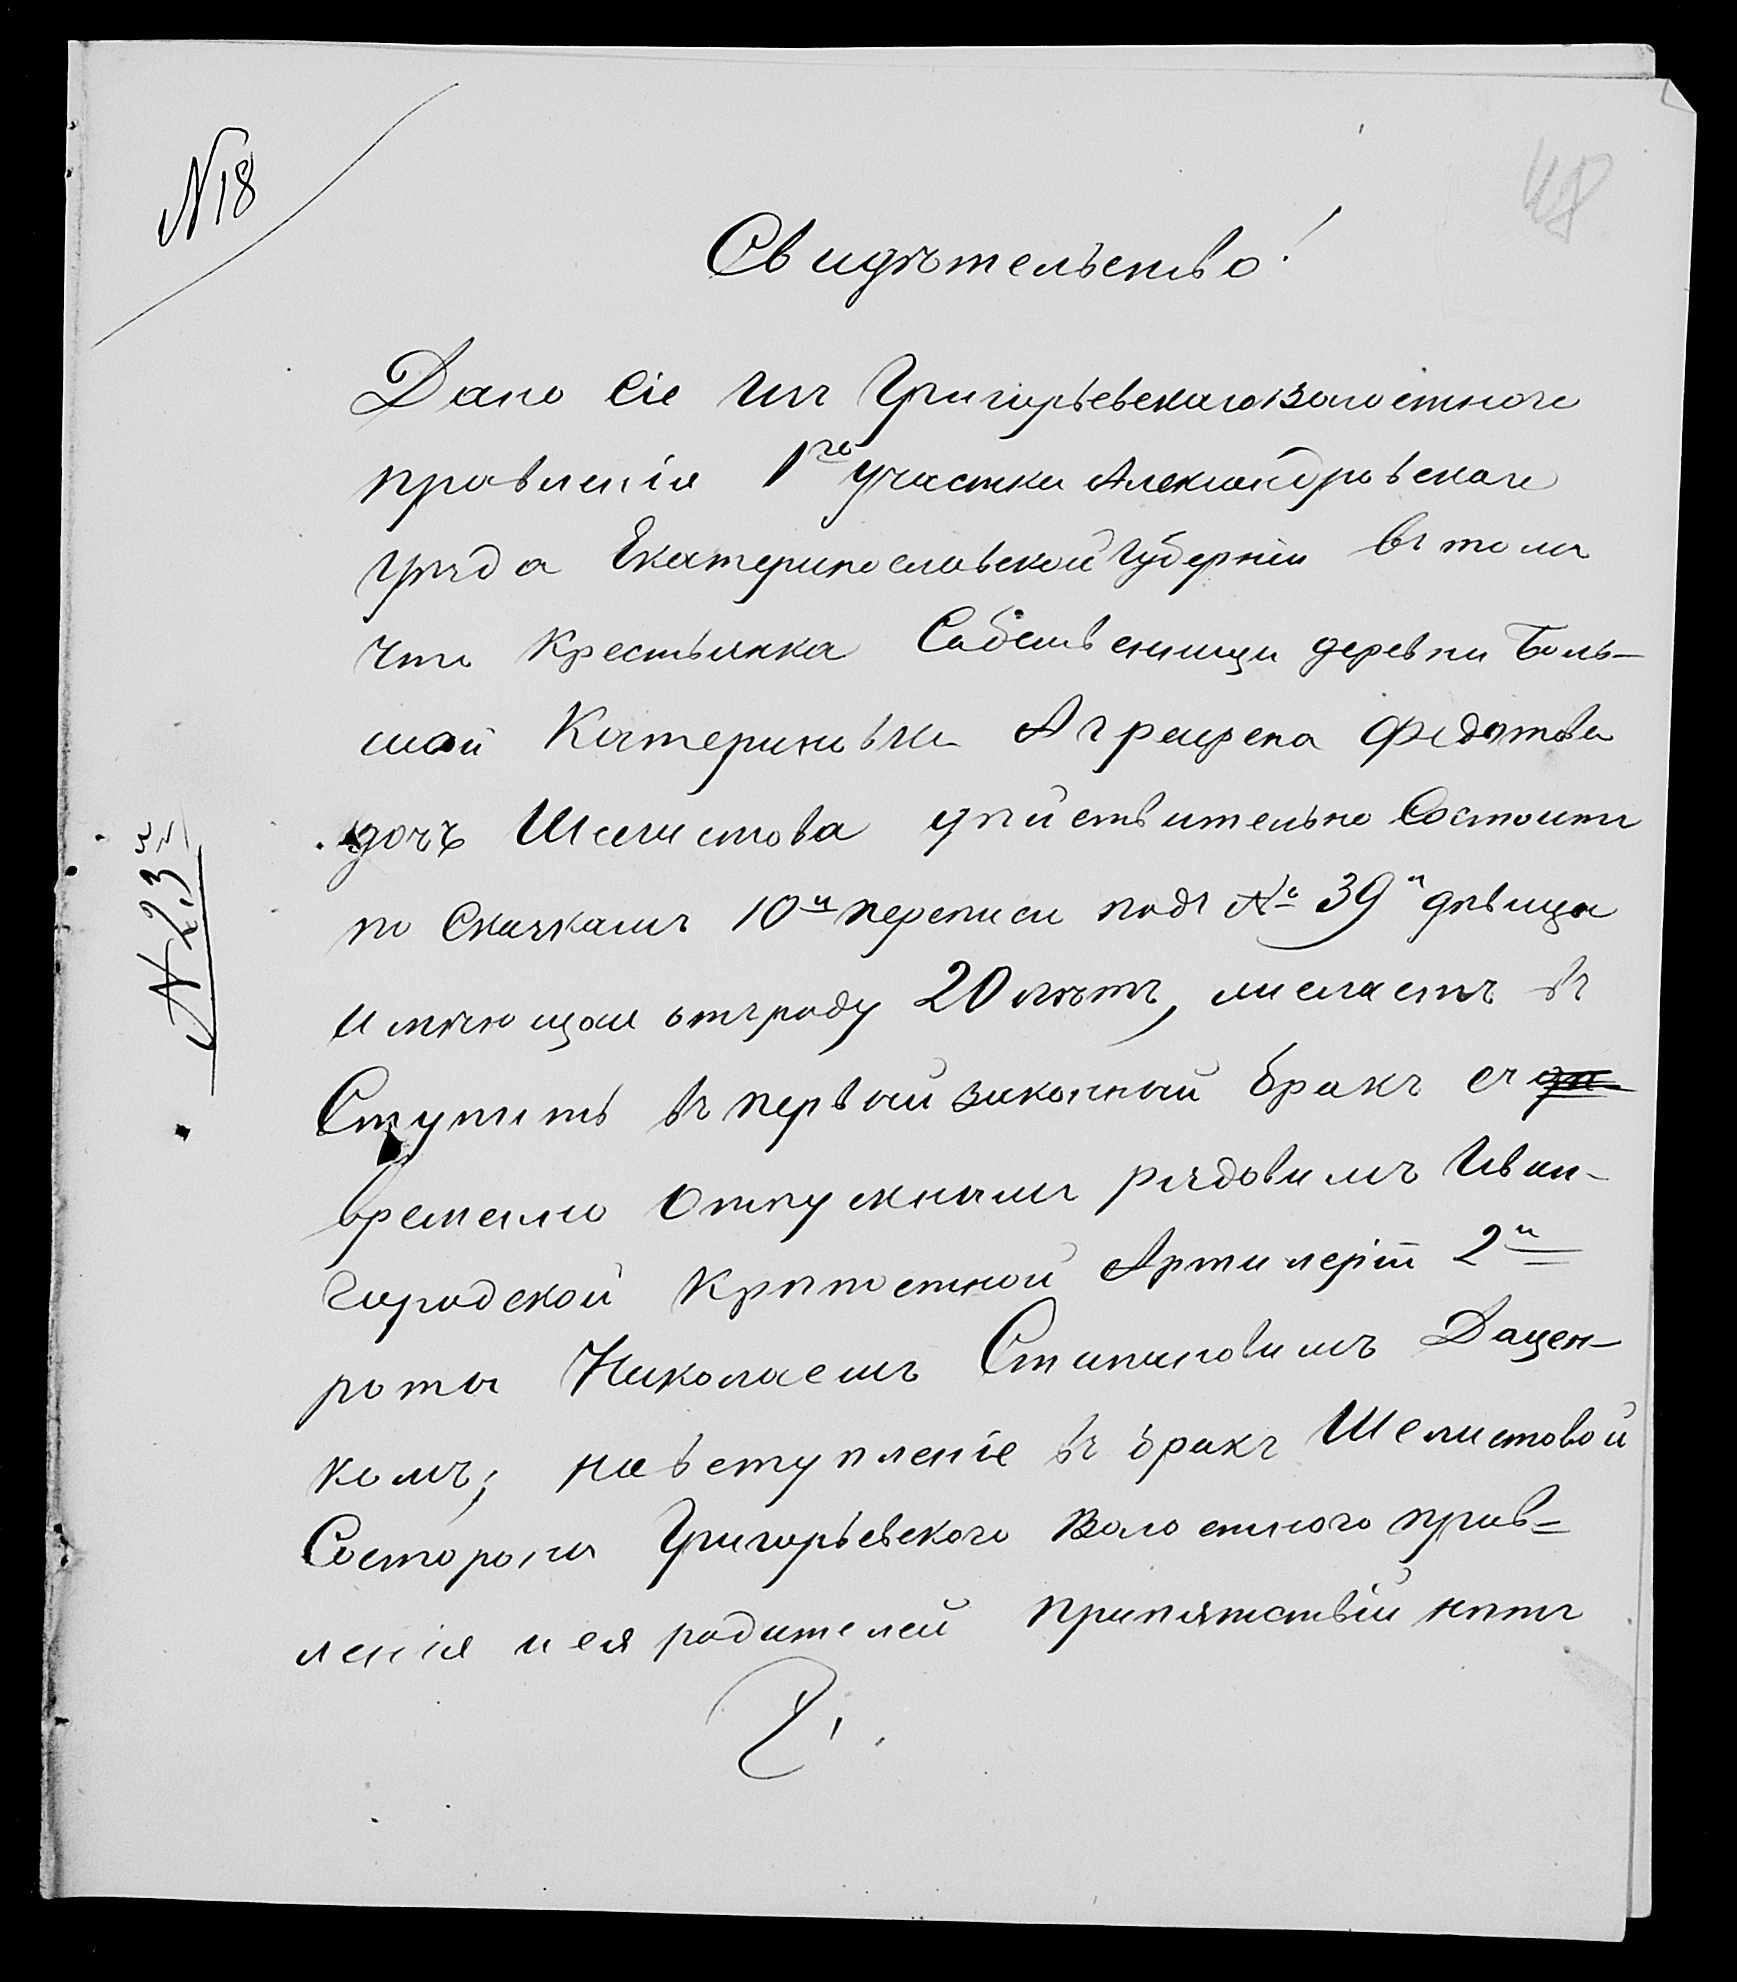 № 18
48
Свидѣтельство!
Дано сіе изъ Григорьевскаго волостного
правленія 1го участка Александровскаго
уѣзда Екатеринославской губерніи въ томъ
что крестьянка Собственница деревни Боль-
шой Катериновки Агрипена Федотова
дочь Шелистова дѣйствительно состоитъ
по Сказкамъ 10й переписи подъ № 39й дѣвица
имѣющая отъ роду 20 лѣтъ, желаетъ въ
Ступить въ первый законный бракъ съ
временно отпускнымъ рядовымъ Иван-
городской крѣпостной Артилеріи 2й
роты Николаемъ Степановымъ Дацен-
комъ; на вступленіе въ бракъ Шелистовой
Состороны Григорьевского Волостного прав=
ленія и ея родителей припятствій нѣтъ
№ 23